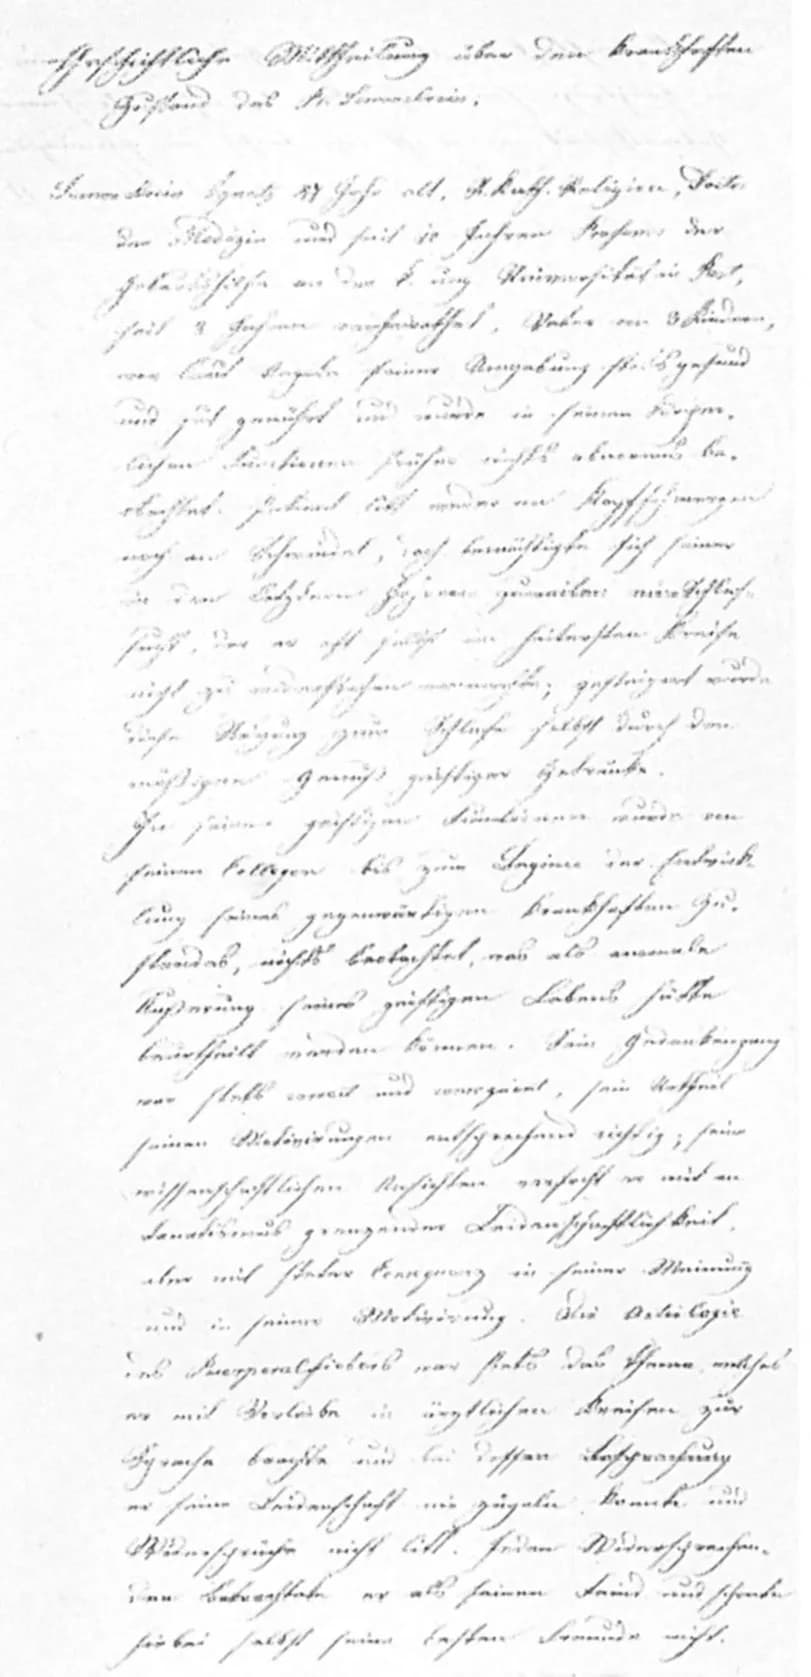 Geschichtliche Mittheilung über den krankhaften
Zustand des Dr. Semmelweis.
Semmelweis Ignatz 47 Jahr alt, R. Kath. Religion, Doctor
der Medizin und seit 10 Jahren Professor der
Geburtshilfe an der k. ung. Universität in Pest,
seit 8 Jahren verheirathet, Vater von 3 Kindern,
war laut Angabe seiner Umgebung stets gesund
und gut genährt und wurde in seinen körper-
lichen Functionen früher nichts abnormes be-
obachtet. Patient litt weder an Kopfschmerzen
noch an Schwindel, doch bemächtigte sich seiner
in den letzteren Jahren zuweilen eine Schlaf-
sucht, der er oft selbst im heitersten Kreise
nicht zu widerstehen vermochte; gesteigert wurde
diese Neigung zum Schlafe selbst durch den
mäßigen Genuß geistiger Getränke.
In seinen geistigen Functionen wurde von
seinen Collegen bis zum Beginne der Entwick-
lung seines gegenwärtigen krankhaften Zu-
standes, nichts beobachtet, was als anomale
Äußerung seines geistigen Lebens hätte
beurtheilt werden können. Sein Gedankengang
war stets correct und consequent, sein Urtheil
seinen Motivirungen entsprechend richtig; seine
wissenschaftlichen Ansichten verfocht er mit an
Fanatismus grenzender Leidenschaftlichkeit,
aber mit steter Consequenz in seiner Meinung
und in seiner Motivirung. Die Aetiologie
des Puerperalfiebers war stets das Thema, welches
er mit Vorliebe in ärztlichen Kreisen zur
Sprache brachte und bei dessen Besprechung
er seine Leidenschaft nie zügeln konnte und
Widersprüche nicht litt. Jeden Widersprechen-
den betrachtete er als seinen Feind und schonte
hiebei selbst seine besten Freunde nicht.